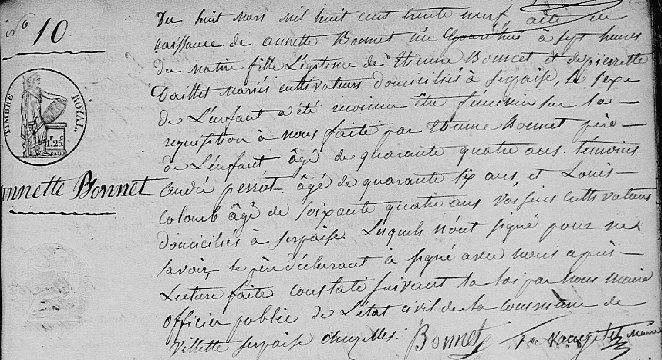 No 10
TIMBRE ROYAL
Annette Bonnet
Du huit Mars mil huit cent trente neuf acte de
naissance de annette Bonnet née aujourd'hui à sept heures
du matin fille Légitime de Etienne Bonnet et de pierrette
mariés cultivateurs domiciliés à serpaise, le sexe
de L'enfant a été reconnu être féminin sur la
requisition à nous faite par Etienne Bonnet père
de L'enfant âgé de quarante quatre ans. temoins
andré perrot âgé de quarante six ans et Louis
colomb âgé de soixante quatre ans voisins cultivateurs
domiciliés à serpaise. Lesquels n'ont signé pour ne
savoir, le père déclarant a signé avec nous après
Lecture faite constaté suivant la loi par nous maire
officier public de l'état civil de la commune de
Villette serpaise
Bonnet